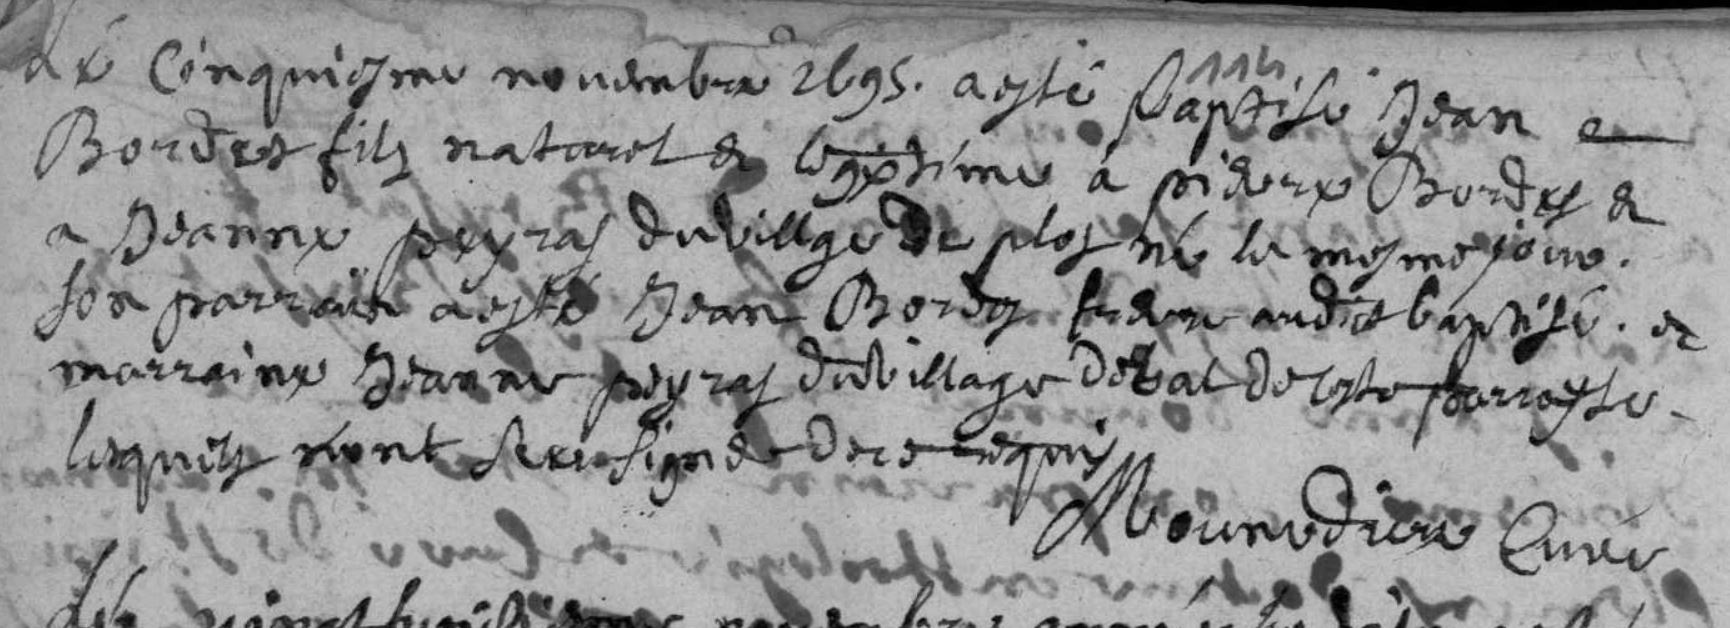 Le Cinquiesme novembre 1695. a esté baptisé Jean
114
Bordes fils naturel & legitime a pierre Bordes &
a Jeanne peyras du villge de plos né le mesme jour.
son parrain a esté Jean Bordes frere audit baptisé. et
marraine Jeanne peyras du village de bal de ceste parroysse
lesquels n'ont sceu signer de ce requis
Mounediere Curé
novembre